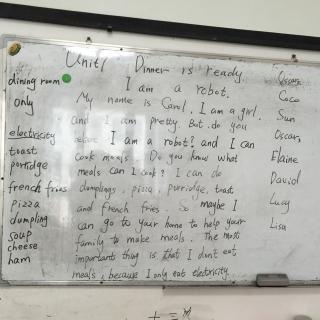 Unit1 Dinner is ready.
dining room
only
electricity
toast
porridge
french fries
pizza
dumpling
soup
cheese
ham
I am a robot.
My name is Carol. I am a girl.
and I am pretty. But do you
believe I am a robot? and I can
cook meals. Do you know what
meals can I cook? I can do
dumplings, pizza, porridge, toast
and french fries. So maybe I
can go to your home to help your
family to make meals. The most
important thing is that I don't eat
meals, because I only eat electricity.
Oscar
Coco
Sun
Oscar
Elaine
David
Lucy
Lisa